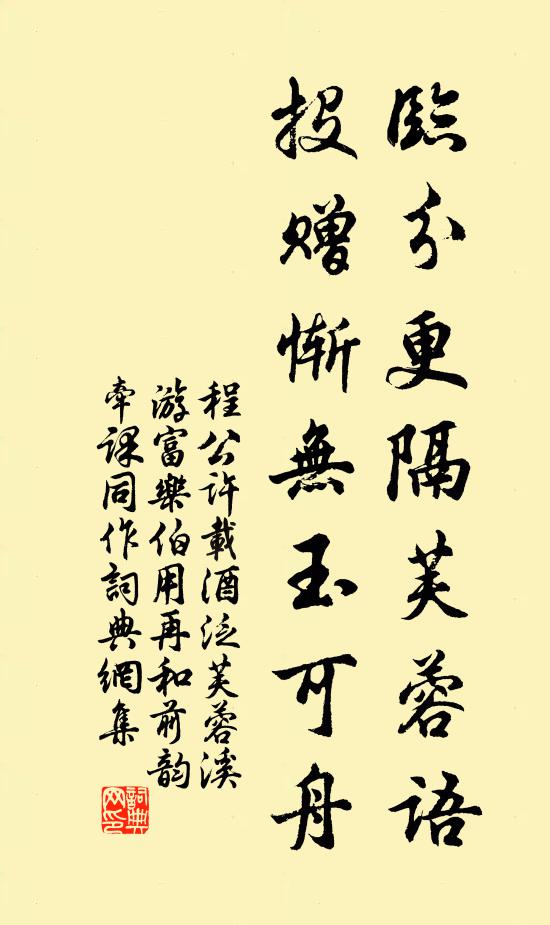 臨分更隔芙蓉語
投贈慚無玉可舟
程公許載酒泛芙蓉溪
游富樂伯用再和前韵
牽課同作詞典網集
詞典网印